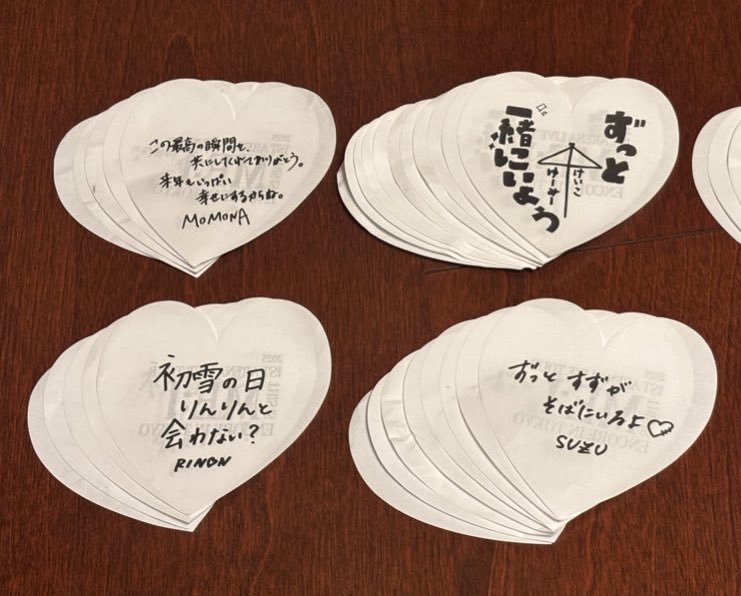 この最高の瞬間を、
共にしてくれてありがとう。
来年もいっぱい
幸せにするからね。
MOMONA
ずっと
一緒にいよう
けいこ
初雪の日
りんりんと
会わない?
RINON
ずっと すずが
そばにいるよ♡
SUZU